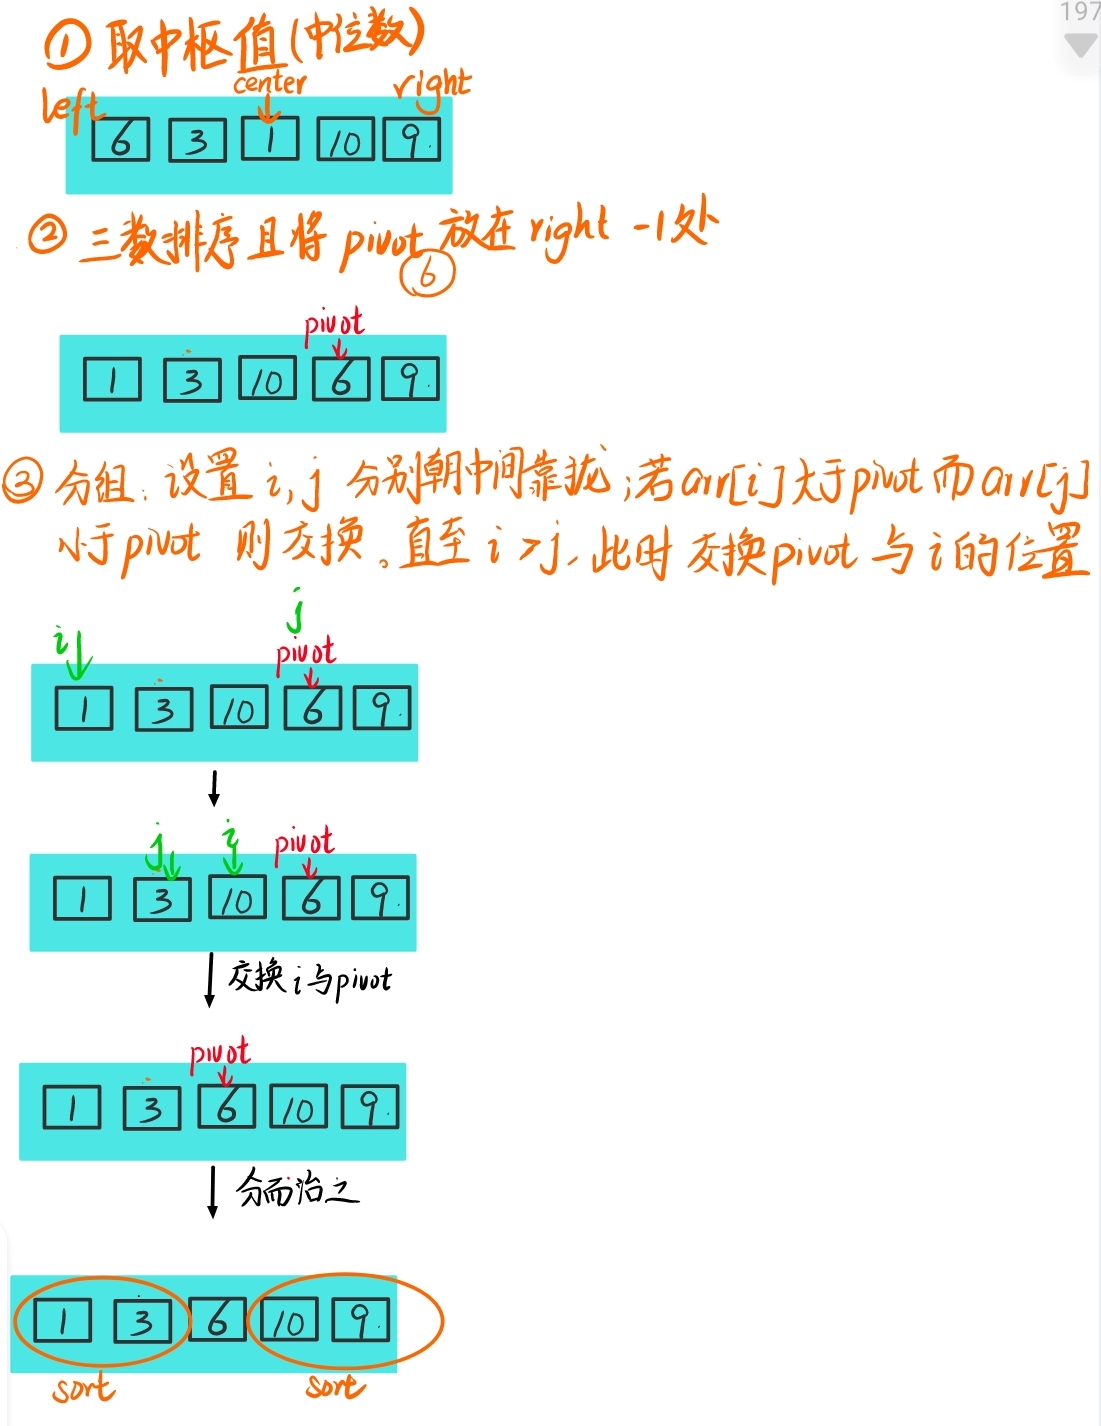 197
① 取中枢值(中位数)
left center right
6 3 1 10 9
② 三数排序且将 pivot 放在 right -1处
6
pivot
1 3 10 6 9
③ 分组:设置 i,j 分别朝中间靠拢;若arr[i]大于pivot而arr[j]
小于pivot 则交换。直至 i>j,此时交换pivot与i的位置
i j
pivot
1 3 10 6 9
j i pivot
1 3 10 6 9
交换i与pivot
pivot
1 3 6 10 9
分而治之
1 3 6 10 9
sort sort